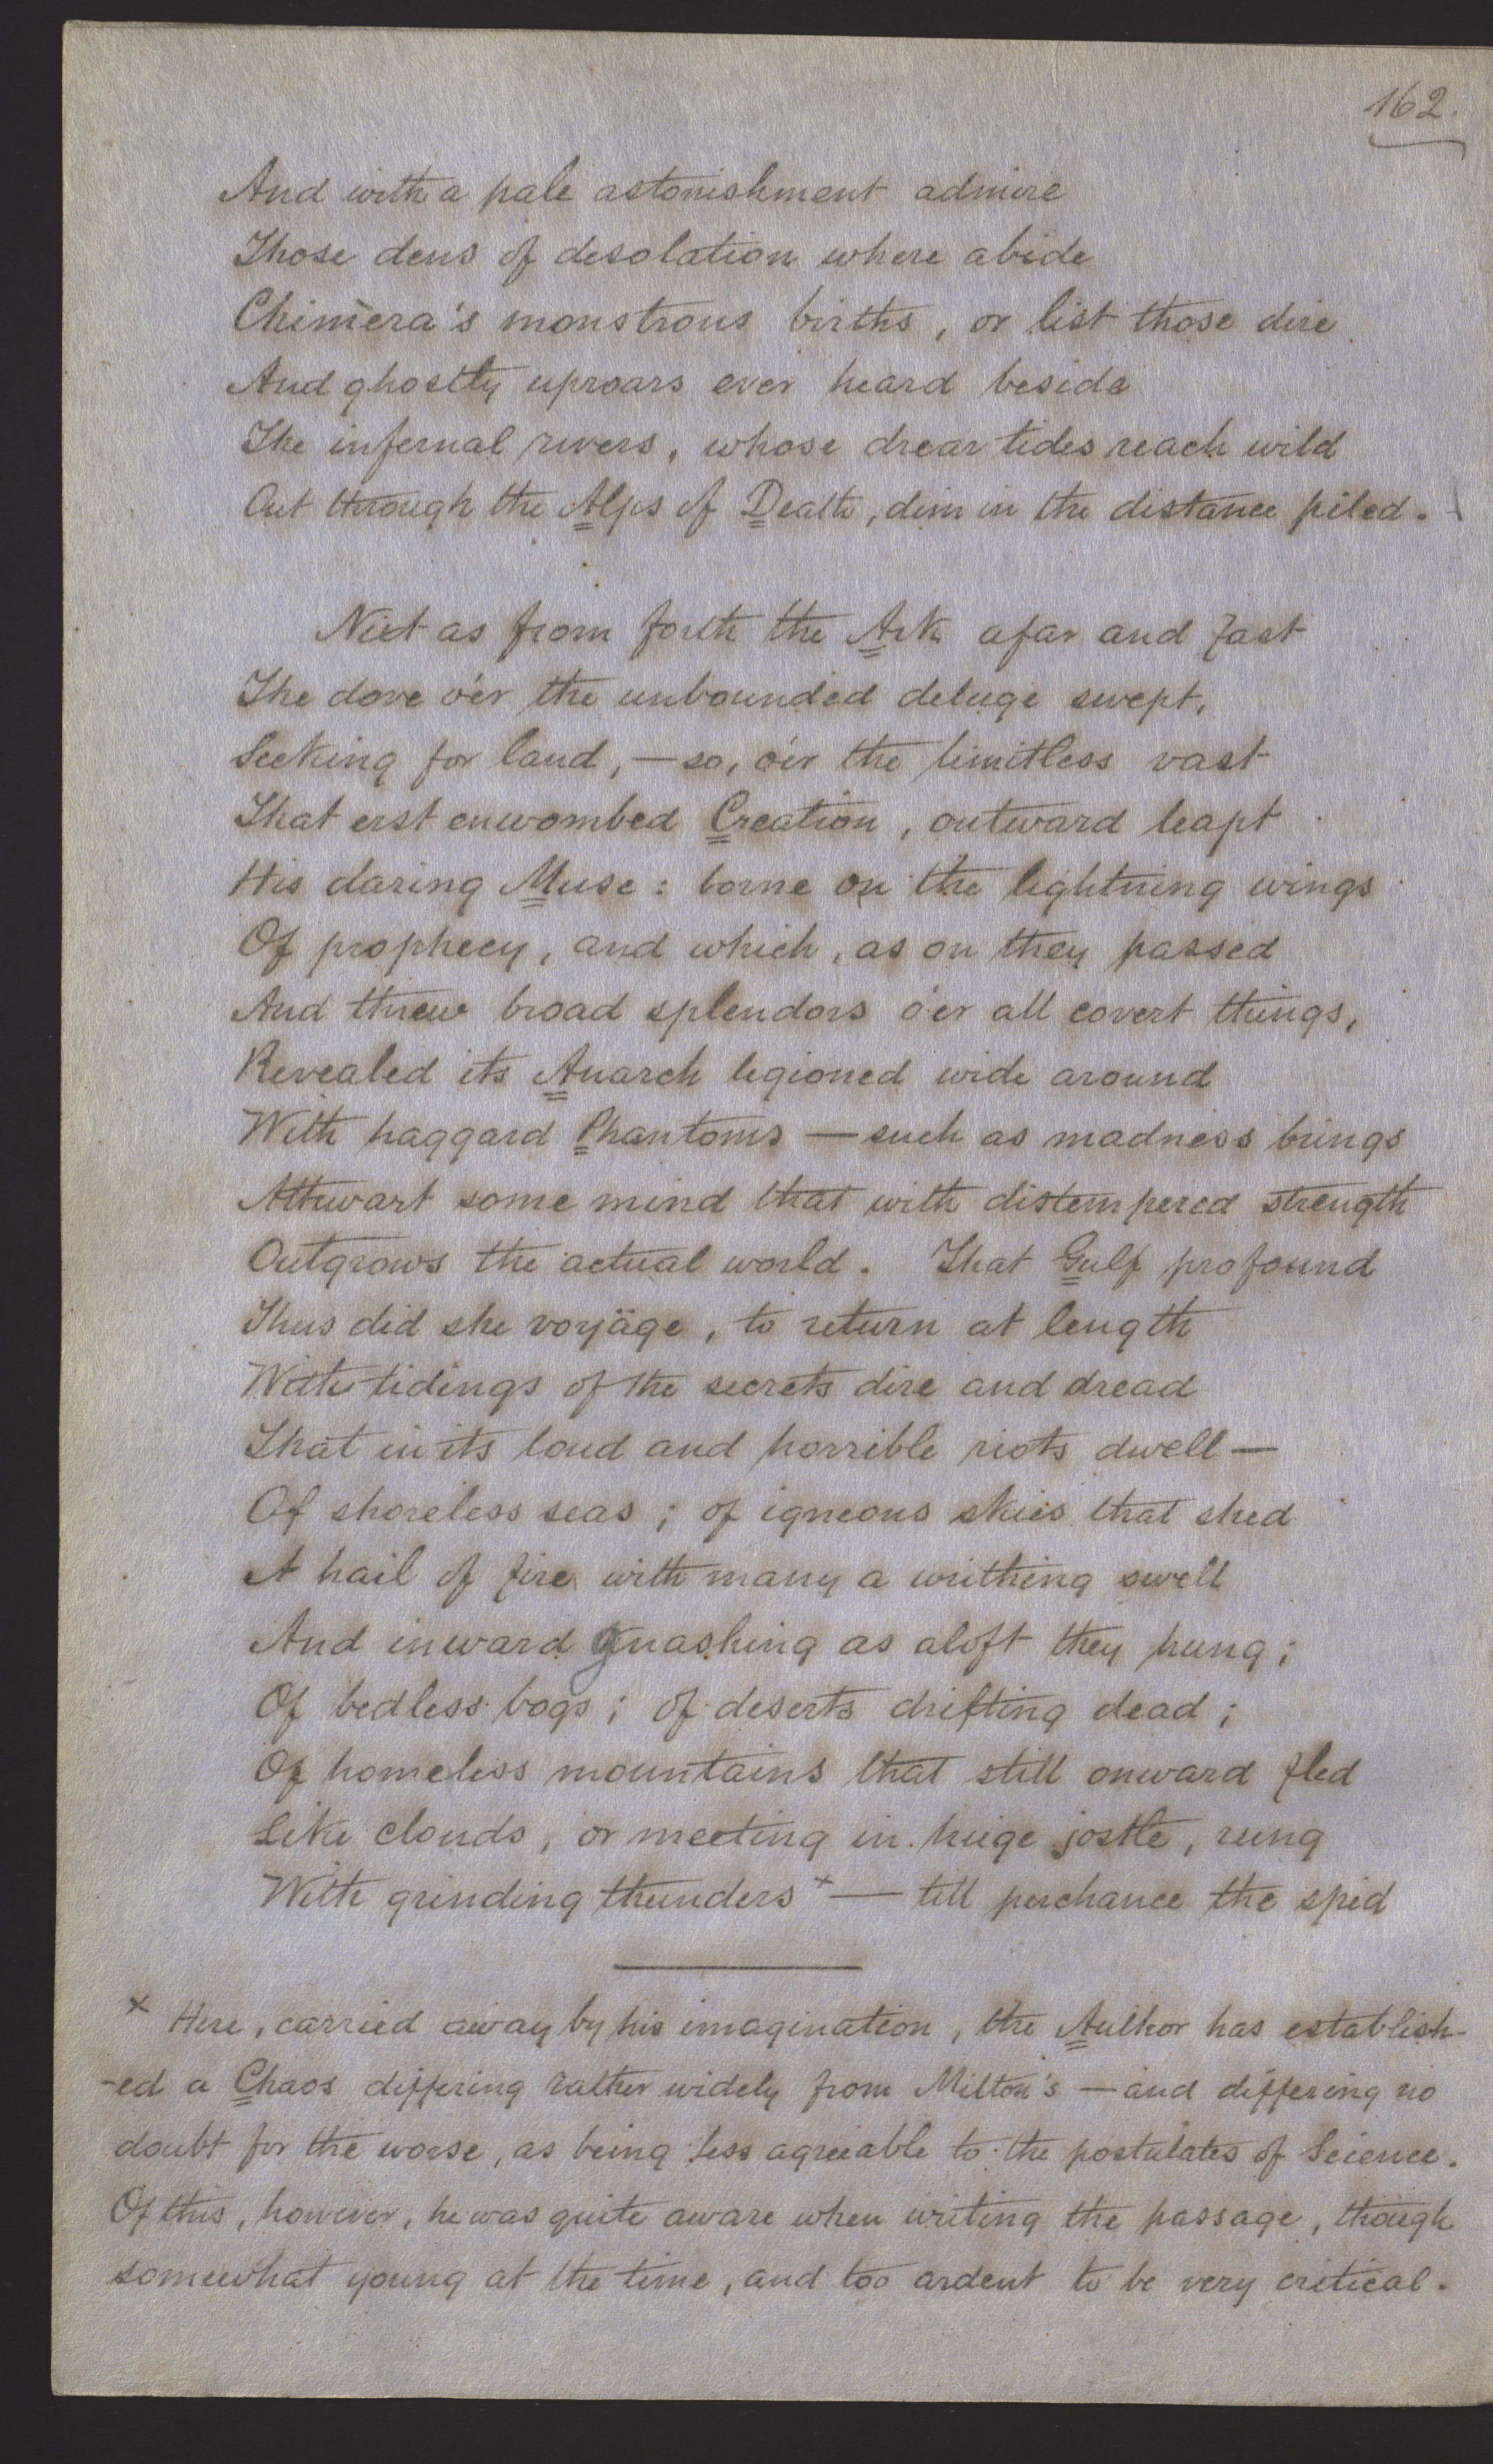 162.
And with a pale astonishment admire
Those dens of desolation where abide
Chimèra's monstrous births, or list those dire
And ghostly uproars ever heard beside
The infernal rivers, whose drear tides reach wild
Out through the Alps of Death, dim in the distance piled.
Next as from forth the Ark afar and fast
The dove o'er the unbounded deluge swept,
Seeking for land, — so, o'er the limitless vast
That erst enwombed Creation, outward leapt
His daring Muse: borne on the lightning wings
Of prophecy, and which, as on they passed
And threw broad splendors o'er all covert things,
Revealed its Anarch legioned wide around
With haggard Phantoms — such as madness brings
Athwart some mind that with distempered strength
Outgrows the actual world. That Gulf profound
Thus did she voyäge, to return at length
With tidings of the secrets dire and dread
That in its loud and horrible riots dwell —
Of shoreless seas; of igneous skies that shed
A hail of fire with many a writhing swell
And inward gnashing as aloft they hung;
Of bedless bogs; of deserts drifting dead;
Of homeless mountains that still onward fled
Like clouds, or meeting in huge jostle, rung
With grinding thunders × — till perchance the sped
× Here, carried away by his imagination, the Author has establish-
-ed a Chaos differing rather widely from Milton's — and differing no
doubt for the worse, as being less agreeable to the postulates of Science.
Of this, however, he was quite aware when writing the passage, though
somewhat young at the time, and too ardent to be very critical.